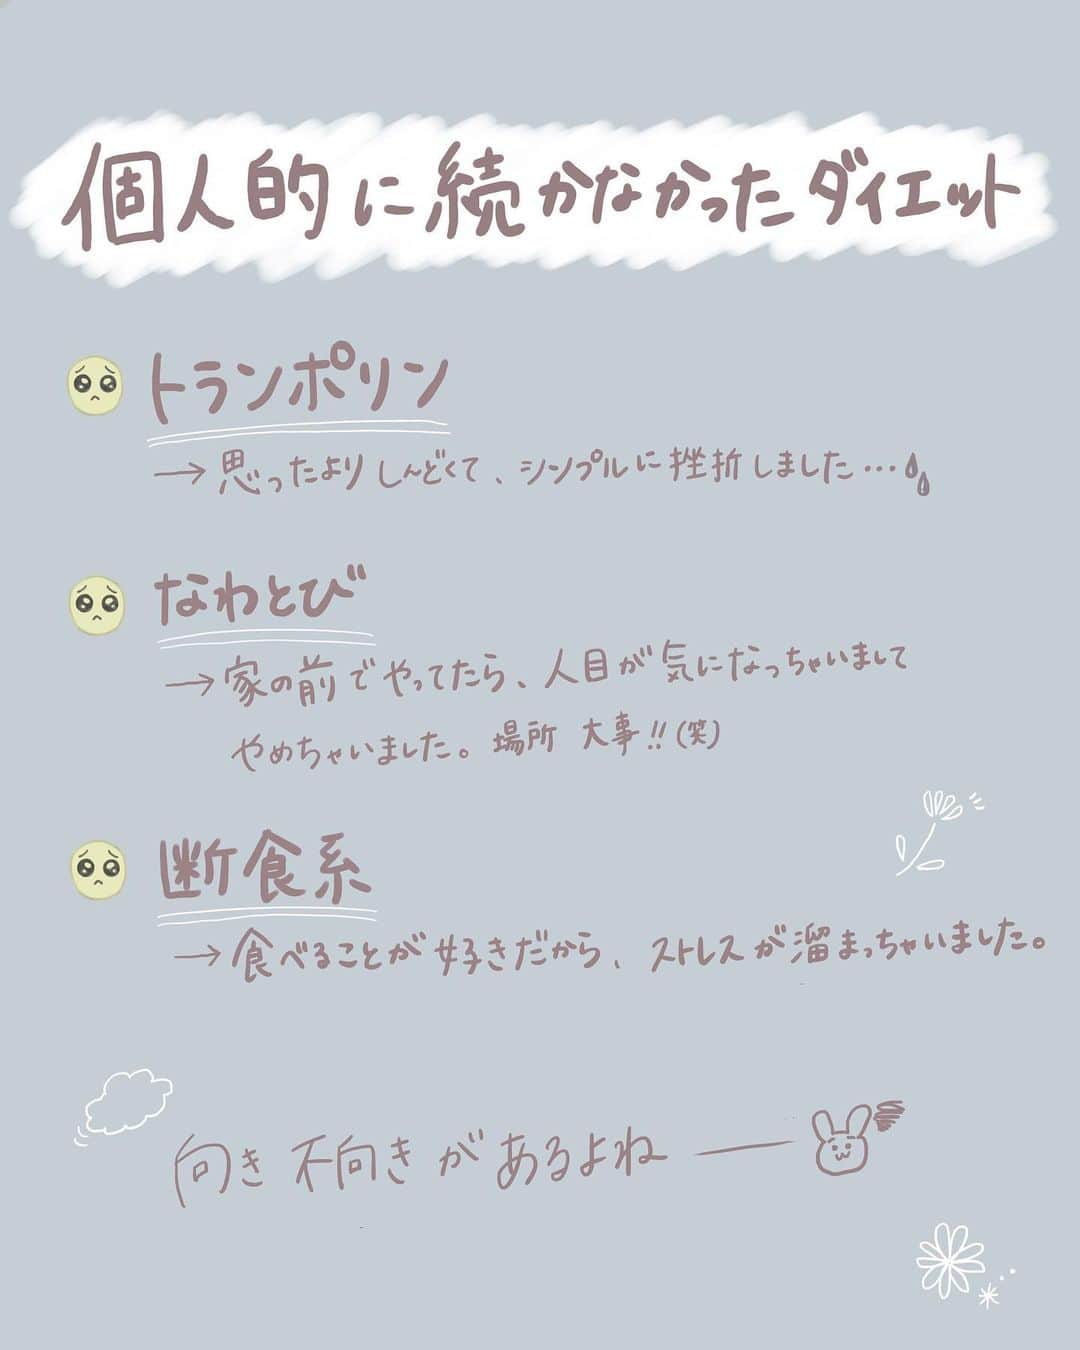 個人的に続かなかったダイエット
トランポリン
→思ったよりしんどくて、シンプルに挫折しました…
なわとび
→家の前でやってたら、人目が気になっちゃいまして
やめちゃいました。場所 大事!!(笑)
断食系
→食べることが好きだから、ストレスが溜まっちゃいました。
向き不向きがあるよねー